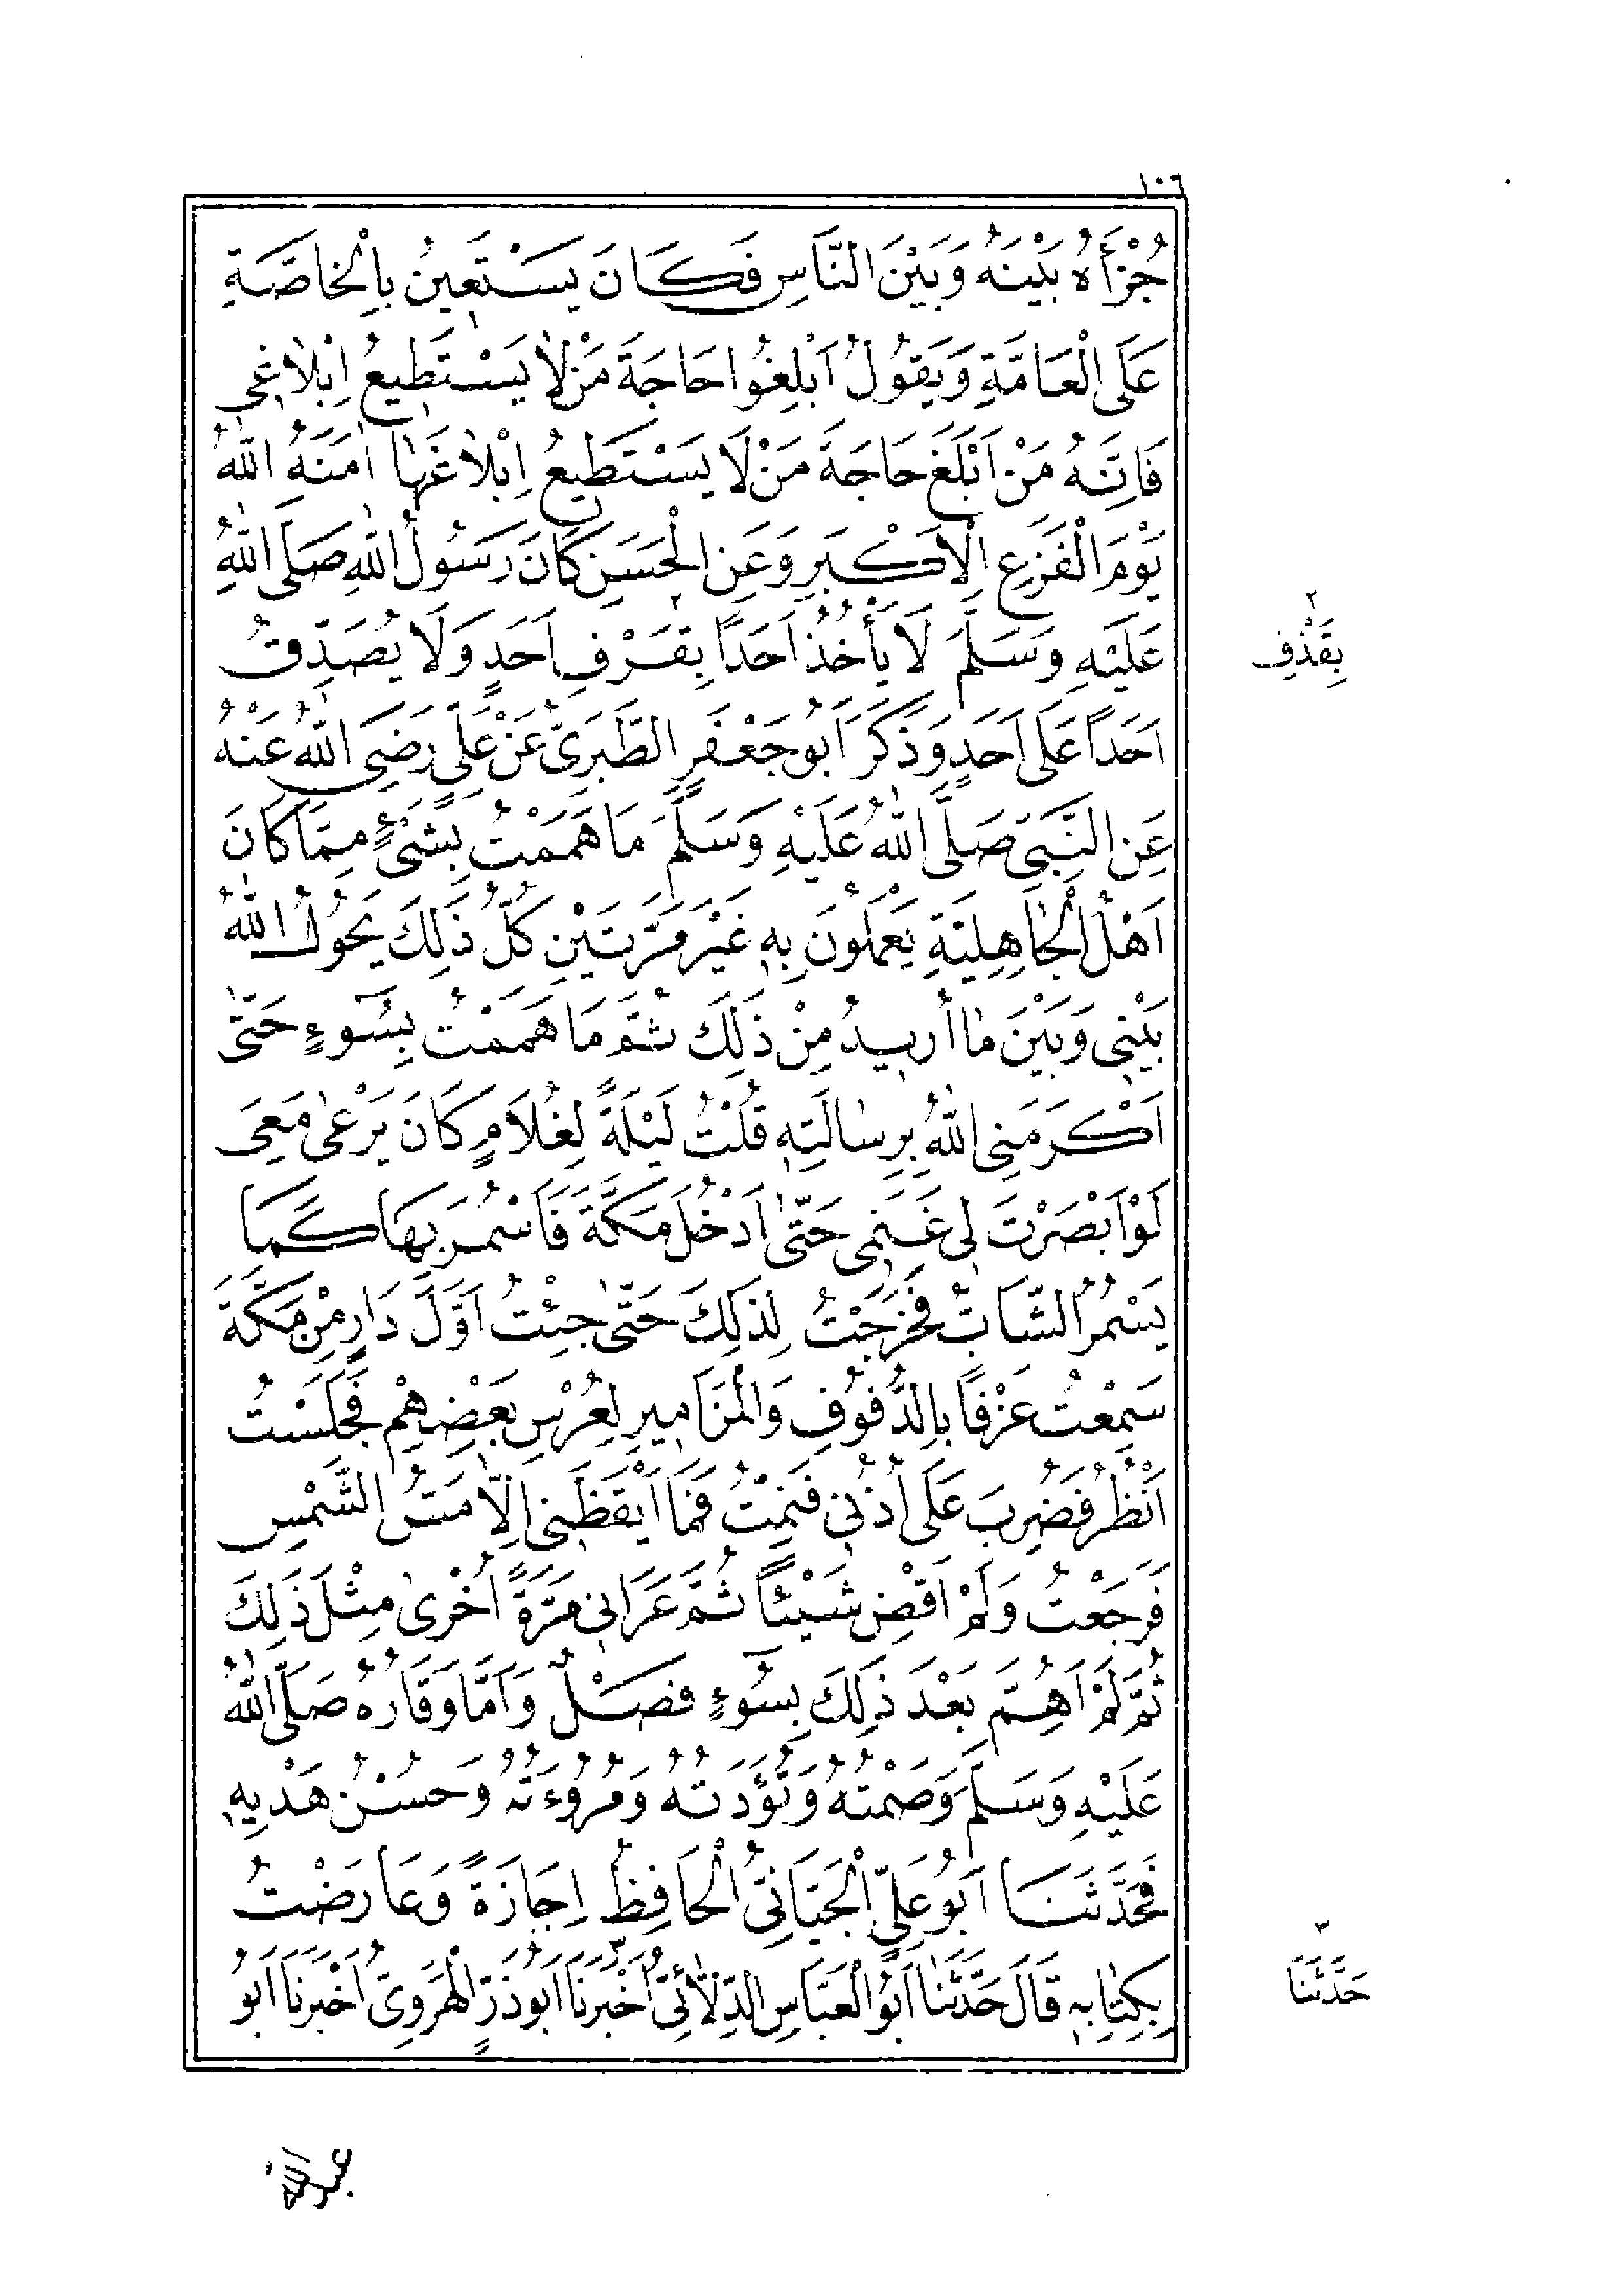 ١٠٦
جُزْأَهُ بَيْنَهُ وَبَيْنَ النَّاسِ فَكَانَ يَسْتَعِينُ بِالْخَاصَّةِ
عَلَى الْعَامَّةِ وَيَقُولُ اَبْلِغُوا حَاجَةَ مَنْ لَا يَسْتَطِيعُ اِبْلَاغِى
فَاِنَّهُ مَنْ اَبْلَغَ حَاجَةَ مَنْ لَا يَسْتَطِيعُ اِبْلَاغَهَا اٰمَنَهُ اللّٰهُ
يَوْمَ الْفَزَعِ الْاَكْبَرِ وَعَنِ الْحَسَنِ كَانَ رَسُولُ اللّٰهِ صَلَّى اللّٰهُ
عَلَيْهِ وَسَلَّمَ لَا يَأْخُذُ اَحَدًا بِقَرْفِ ٢ اَحَدٍ وَلَا يُصَدِّقُ
اَحَدًا عَلَى اَحَدٍ وَذَكَرَ اَبُو جَعْفَرٍ الطَّبَرِىُّ عَنْ عَلِىٍّ رَضِىَ اللّٰهُ عَنْهُ
عَنِ النَّبِىِّ صَلَّى اللّٰهُ عَلَيْهِ وَسَلَّمَ مَا هَمَمْتُ بِشَىْءٍ مِمَّا كَانَ
اَهْلُ الْجَاهِلِيَّةِ يَعْمَلُونَ بِهِ غَيْرَ مَرَّتَيْنِ كُلُّ ذٰلِكَ يَحُولُ اللّٰهُ
بَيْنِى وَبَيْنَ مَا اُرِيدُ مِنْ ذٰلِكَ ثُمَّ مَا هَمَمْتُ بِسُوٓءٍ حَتّٰى
اَكْرَمَنِى اللّٰهُ بِرِسَالَتِهِ قُلْتُ لَيْلَةً لِغُلَامٍ كَانَ يَرْعٰى مَعِىَ
لَوْ اَبْصَرْتَ لِى غَنَمِى حَتّٰى اَدْخُلَ مَكَّةَ فَاَسْمُرَ بِهَا كَمَا
يَسْمُرُ الشَّابُّ فَخَرَجْتُ لِذٰلِكَ حَتّٰى جِئْتُ اَوَّلَ دَارٍ مِنْ مَكَّةَ
سَمِعْتُ عَزْفًا بِالدُّفُوفِ وَالْمَزَامِيرِ لِعُرْسِ بَعْضِهِمْ فَجَلَسْتُ
اَنْظُرُ فَضُرِبَ عَلَى اُذُنِى فَنِمْتُ فَمَا اَيْقَظَنِى اِلَّا مَسُّ الشَّمْسِ
فَرَجَعْتُ وَلَمْ اَقْضِ شَيْئًا ثُمَّ عَرَانِى مَرَّةً اُخْرٰى مِثْلَ ذٰلِكَ
ثُمَّ لَمْ اَهُمَّ بَعْدَ ذٰلِكَ بِسُوٓءٍ فَصْلٌ وَاَمَّا وَقَارُهُ صَلَّى اللّٰهُ
عَلَيْهِ وَسَلَّمَ وَصَمْتُهُ وَتُؤَدَتُهُ وَمُرُوءَتُهُ وَحُسْنُ هَدْيِهِ
فَحَدَّثَنَا اَبُو عَلِىٍّ الْجَيَّانِىُّ الْحَافِظُ اِجَازَةً وَعَارَضْتُ
بِكِتَابِهِ قَالَ حَدَّثَنَا اَبُو الْعَبَّاسِ الدِّلَائِىُّ اَخْبَرَنَا ٣ اَبُو ذَرٍّ الْهَرَوِىُّ اَخْبَرَنَا اَبُو
٢
بِقَذْفِ
٣
حَدَّثَنَا
عبد الله